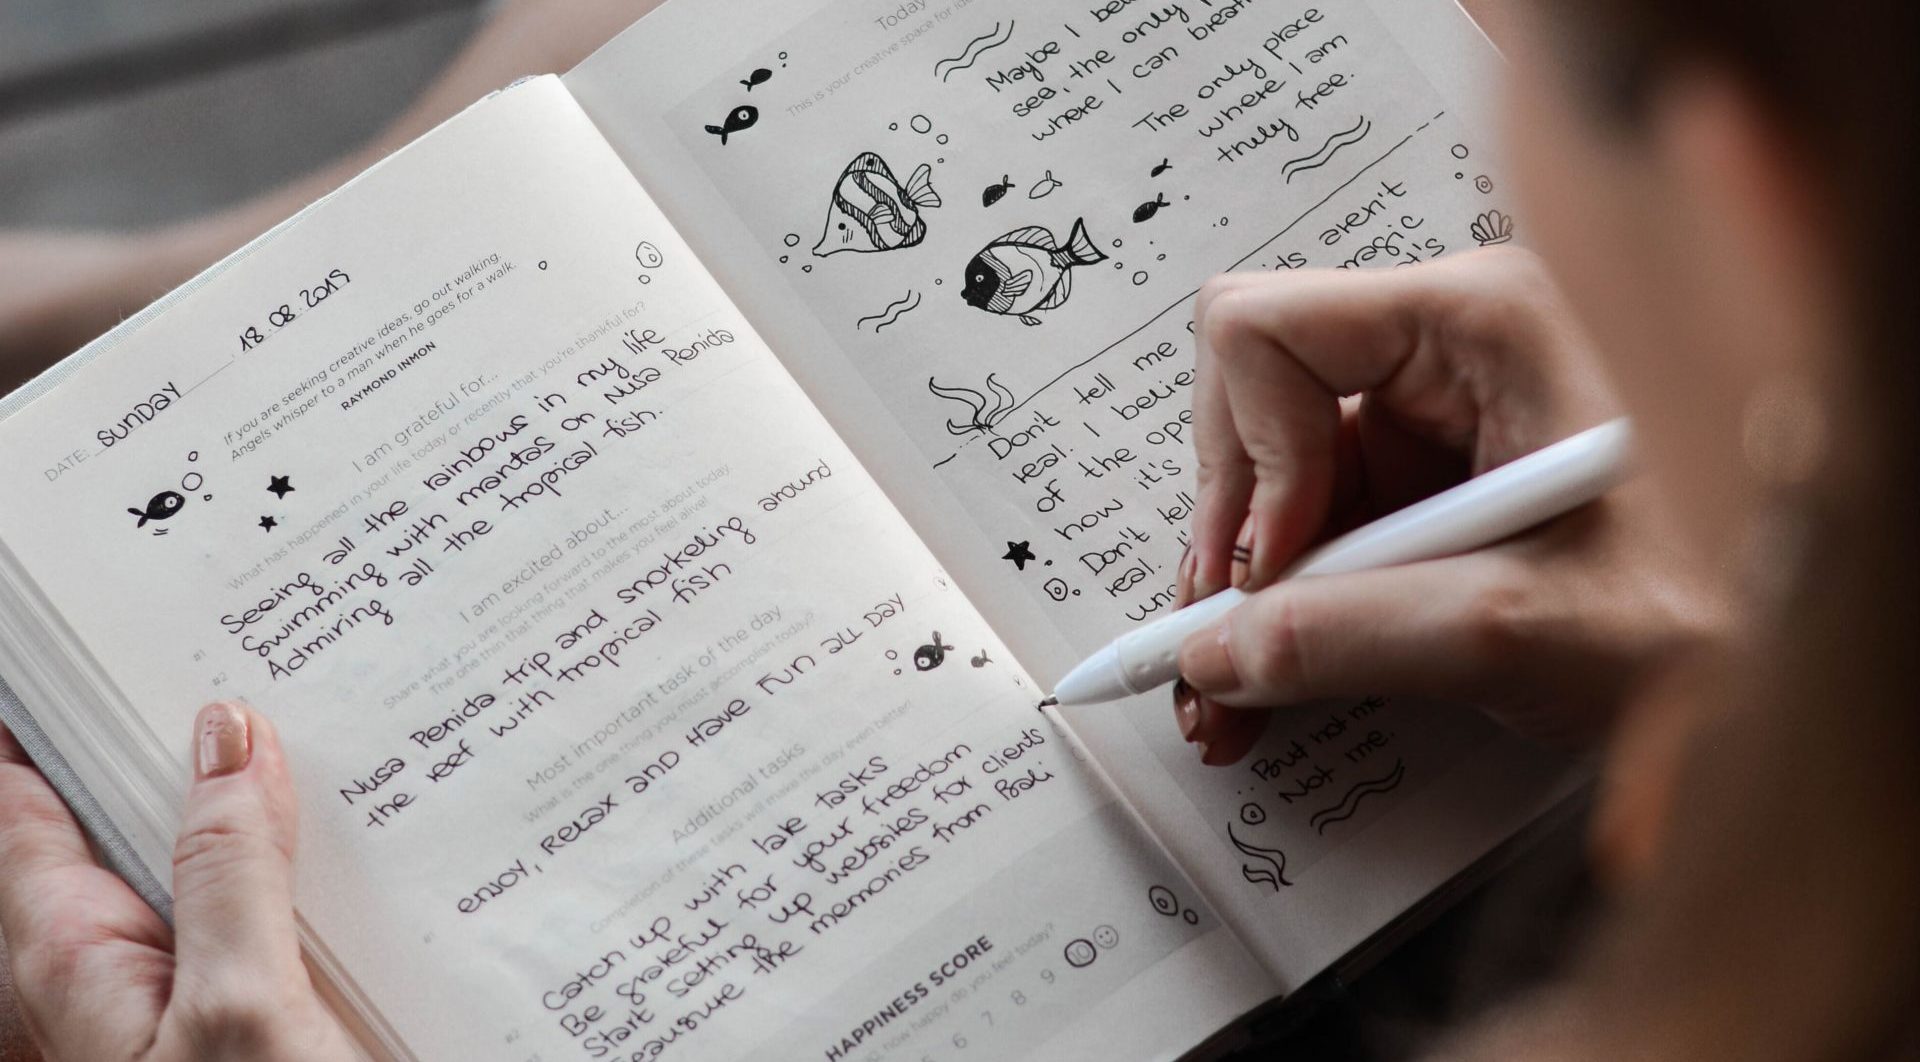 DATE: SUNDAY 18.08.2019
If you are seeking creative ideas, go out walking.
Angels whisper to a man when he goes for a walk.
RAYMOND INMON
I am grateful for...
What has happened in your life today or recently that you're thankful for?
#1 Seeing all the rainbows in my life
#2 Swimming with mantas on Nusa Penida
Admiring all the tropical fish.
I am excited about...
Share what you are looking forward to the most about today.
The one thing that makes you feel alive!
Nusa Penida trip and snorkeling around
the reef with tropical fish
Most important task of the day
What is the one thing you must accomplish today?
ENJOY, RELAX AND HAVE FUN ALL DAY
Additional tasks
Completion of these tasks will make the day even better!
#1 Catch up with late tasks
#2 Be grateful for your freedom
#3 Start setting up websites for clients
the memories from Bali
HAPPINESS SCORE
how happy do you feel today?
6 7 8 9 10
Today
This is your creative space for
Maybe I
sea, the only
where I can
The only place
where I am
truly free.
aren't
magic
Don't tell me
real. I
of the
how it's
Don't tell
real.
But not me.
Not me.